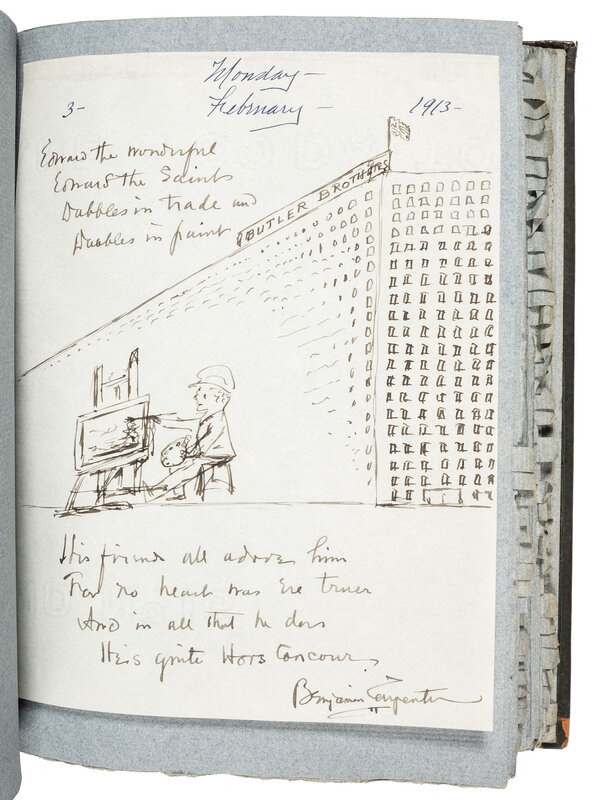 Monday –
3 – February – 1913 –
Edward the wonderful
Edward the Saint
Dabbles in trade and
Dabbles in paint
BUTLER BROTHERS
His friends all adore him
For no heart was ere truer
And in all that he does
He is quite Hors Concours
Benjamin Carpenter